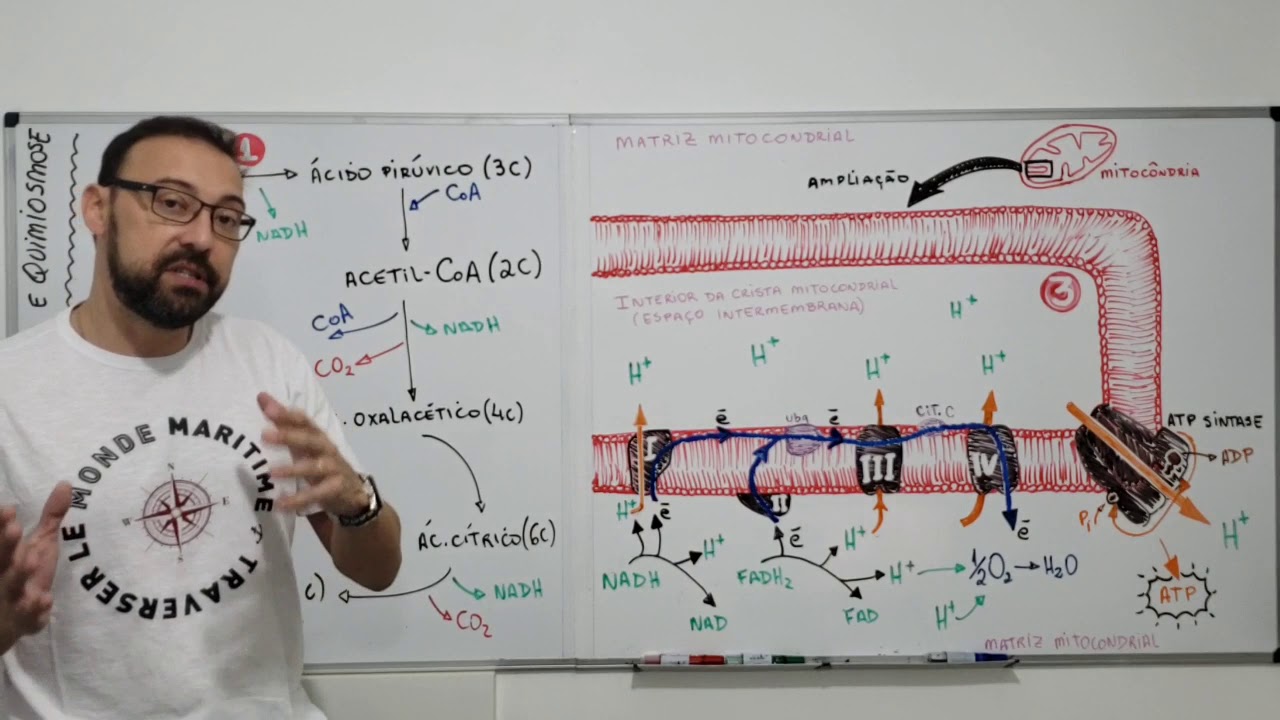 E QUIMIOSMOSE
1
ÁCIDO PIRÚVICO (3C)
NADH
CoA
ACETIL-CoA (2C)
CoA
NADH
CO2
. OXALACÉTICO (4C)
ÁC. CÍTRICO (6C)
C)
NADH
CO2
LE MONDE MARITIME
TRAVERSER
N
W
E
MATRIZ MITOCONDRIAL
AMPLIAÇÃO
MITOCÔNDRIA
INTERIOR DA CRISTA MITOCONDRIAL
(ESPAÇO INTERMEMBRANA)
3
H+
H+
H+
H+
H+
I
ē
Ubq
ē
CIT. C
III
IV
II
ATP SINTASE
ADP
Pi
H+
ē
ē
ē
H+
NADH
H+
NAD
FADH2
H+
H+
FAD
½O2
H2O
H+
ATP
MATRIZ MITOCONDRIAL